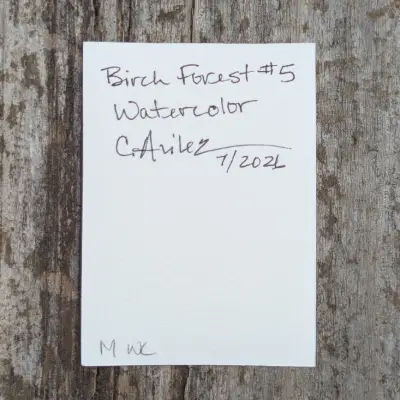 Birch Forest #5
Watercolor
C. Avilez
7/2021
M WC